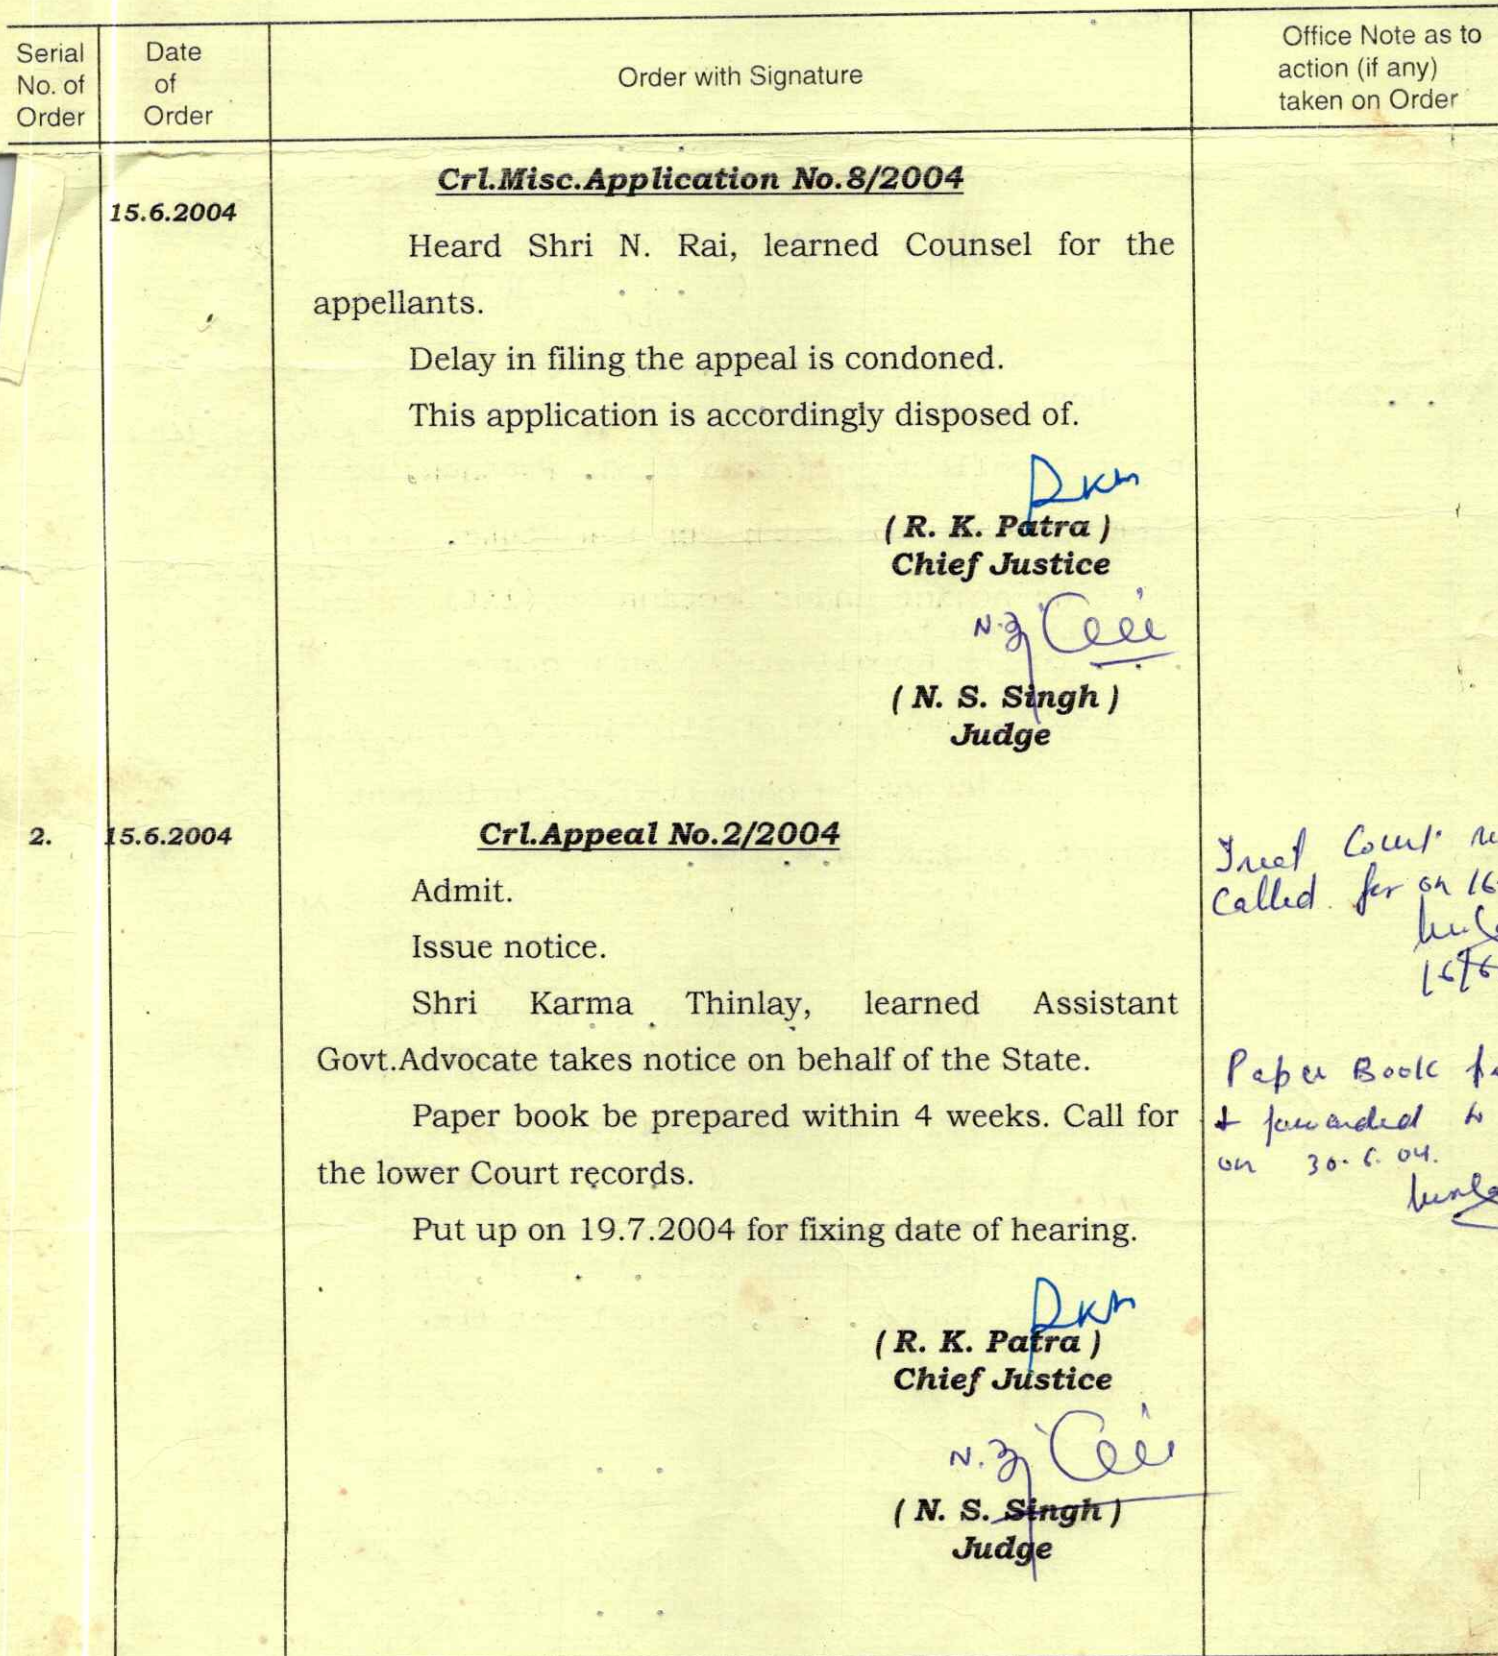 Serial No. of Order
Date of Order
Order with Signature
Office Note as to action (if any) taken on Order
Crl.Misc.Application No.8/2004
15.6.2004
Heard Shri N. Rai, learned Counsel for the
appellants.
Delay in filing the appeal is condoned.
This application is accordingly disposed of.
( R. K. Patra )
Chief Justice
( N. S. Singh )
Judge
2. 15.6.2004 Crl.Appeal No.2/2004
Admit.
Issue notice.
Shri Karma Thinlay, learned Assistant
Govt.Advocate takes notice on behalf of the State.
Paper book be prepared within 4 weeks. Call for
the lower Court records.
Put up on 19.7.2004 for fixing date of hearing.
( R. K. Patra )
Chief Justice
( N. S. Singh )
Judge
Court
Called for on 16
Paper Book
& forwarded to
on 30.6.04.